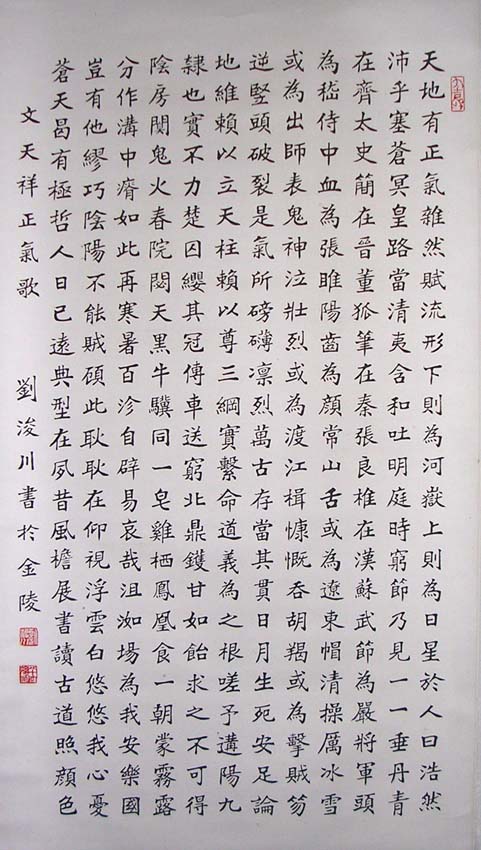 天地有正氣雜然賦流形下則為河嶽上則為日星於人曰浩然
沛乎塞蒼冥皇路當清夷含和吐明庭時窮節乃見一一垂丹青
在齊太史簡在晉董狐筆在秦張良椎在漢蘇武節為嚴將軍頭
為嵇侍中血為張睢陽齒為顏常山舌或為遼東帽清操厲冰雪
或為出師表鬼神泣壯烈或為渡江楫慷慨吞胡羯或為擊賊笏
逆豎頭破裂是氣所磅礴凜烈萬古存當其貫日月生死安足論
地維賴以立天柱賴以尊三綱實繫命道義為之根嗟予遘陽九
隸也實不力楚囚纓其冠傳車送窮北鼎鑊甘如飴求之不可得
陰房闃鬼火春院閟天黑牛驥同一皂雞栖鳳凰食一朝蒙霧露
分作溝中瘠如此再寒暑百沴自辟易哀哉沮洳場為我安樂國
豈有他繆巧陰陽不能賊顧此耿耿在仰視浮雲白悠悠我心憂
蒼天曷有極哲人日已遠典型在夙昔風檐展書讀古道照顏色
文天祥正氣歌 劉浚川書於金陵